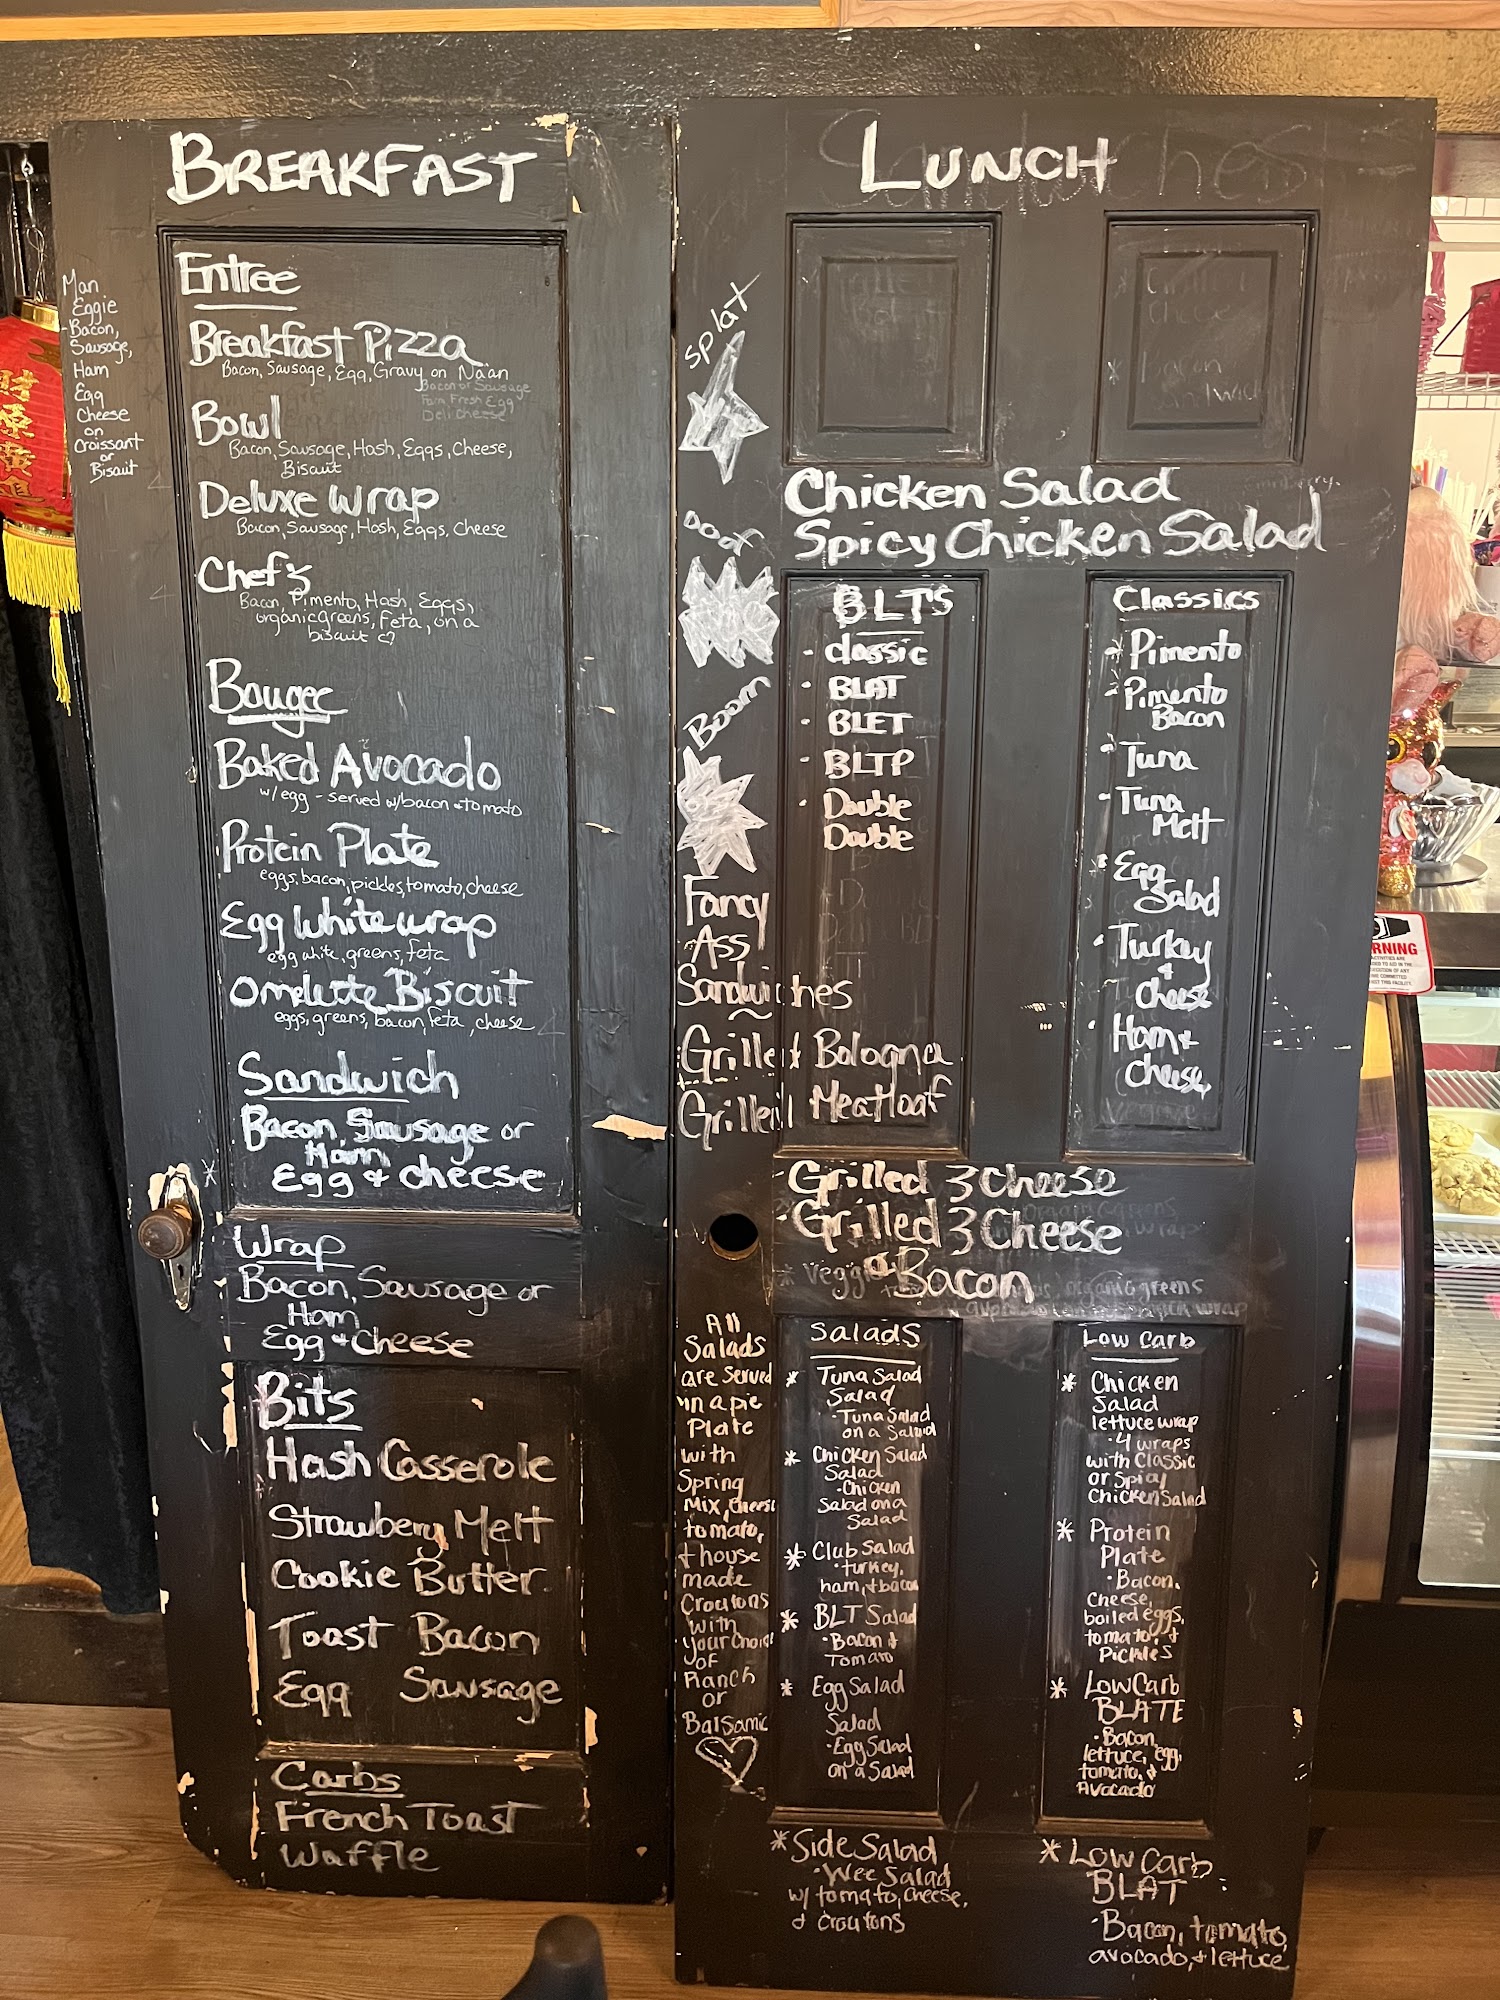 BREAKFAST
Man
Eggie
-Bacon,
Sausage,
Ham
Egg
Cheese
on
Croissant
or
Bisauit
Entree
Breakfast Pizza
Bacon, Sausage, Egg, Gravy on Naan
Bacon or Sausage
Farm Fresh Egg
Deli cheese
Bowl
Bacon, Sausage, Hash, Eggs, Cheese,
Biscuit
Deluxe Wrap
Bacon, Sausage, Hash, Eggs, Cheese
Chef's
Bacon, Pimento, Hash, Eggs,
organic greens, Feta, on a
biscuit
Bougee
Baked Avocado
w/ egg - served w/bacon + tomato
Protein Plate
eggs, bacon, pickles, tomato, cheese
Egg White wrap
egg white, greens, feta
Omelette Biscuit
eggs, greens, bacon feta, cheese
Sandwich
Bacon, Sausage or
Ham
Egg + cheese
Wrap
Bacon, Sausage or
Ham
Egg + Cheese
Bits
Hash Casserole
Strawbery Melt
Cookie Butter
Toast Bacon
Egg Sausage
Carbs
French Toast
Waffle
LUNCH
Sandwiches
Splat
Doof
Boom
Chicken Salad
Spicy Chicken Salad
BLT'S
· classic
· BLAT
· BLET
· BLTP
· Double
Double
Classics
* Pimento
- Pimento
Bacon
· Tuna
· Tuna
Melt
* Egg
Salad
· Turkey
+
Cheese
· Ham +
Cheese
Fancy
Ass
Sandwiches
Grilled Bologna
Grilled Meatloaf
- Grilled 3 Cheese
- Grilled 3 Cheese
& Bacon
* Veggie
organic greens
wrap
All
Salads
are served
in a pie
Plate
with
Spring
Mix, cheese
tomato,
+ house
made
Croutons
with
your choice
of
Ranch
or
Balsamic
Salads
* Tuna Salad
Salad
· Tuna Salad
on a Salad
* Chicken Salad
Salad
· Chicken
Salad on a
Salad
* Club Salad
· turkey,
ham, + bacon
* BLT Salad
· Bacon +
Tomato
* Egg Salad
Salad
· Egg Salad
on a Salad
* Side Salad
· Wee Salad
w/ tomato, cheese,
& croutons
Low Carb
* Chicken
Salad
lettuce wrap
· 4 wraps
with Classic
or Spicy
Chicken Salad
* Protein
Plate
· Bacon,
cheese,
boiled eggs,
tomato, +
Pickles
* Low Carb
BLATE
· Bacon,
lettuce, egg,
tomato, +
Avocado
* Low Carb
BLAT
· Bacon, tomato,
avocado, + lettuce